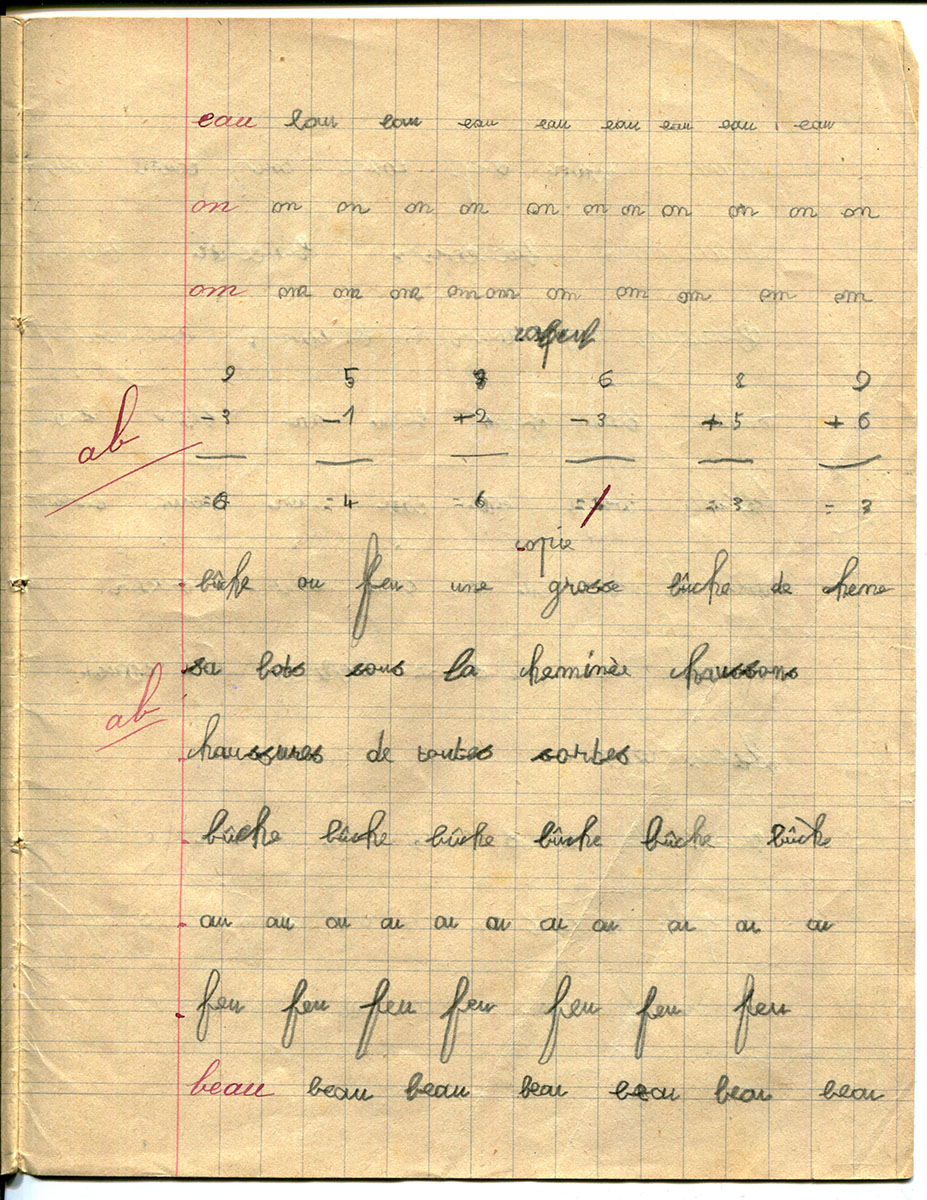 eau eau eau eau eau eau eau eau eau
on on on on on on on on on on on on
om om om om om om om om om om om
9 5 8 6 8 9
ab - 3 - 1 + 2 - 3 + 5 + 6
= 6 = 4 = 6 = 3 = 3
copie
bûche au feu une grosse bûche de chene
sa bots sous la cheminèe chaussons
ab
chaussures de toutes sortes
bûche bûche bûche bûche bûche bûche
au au au au au au au au au au au
feu feu feu feu feu feu feu
beau beau beau beau beau beau beau